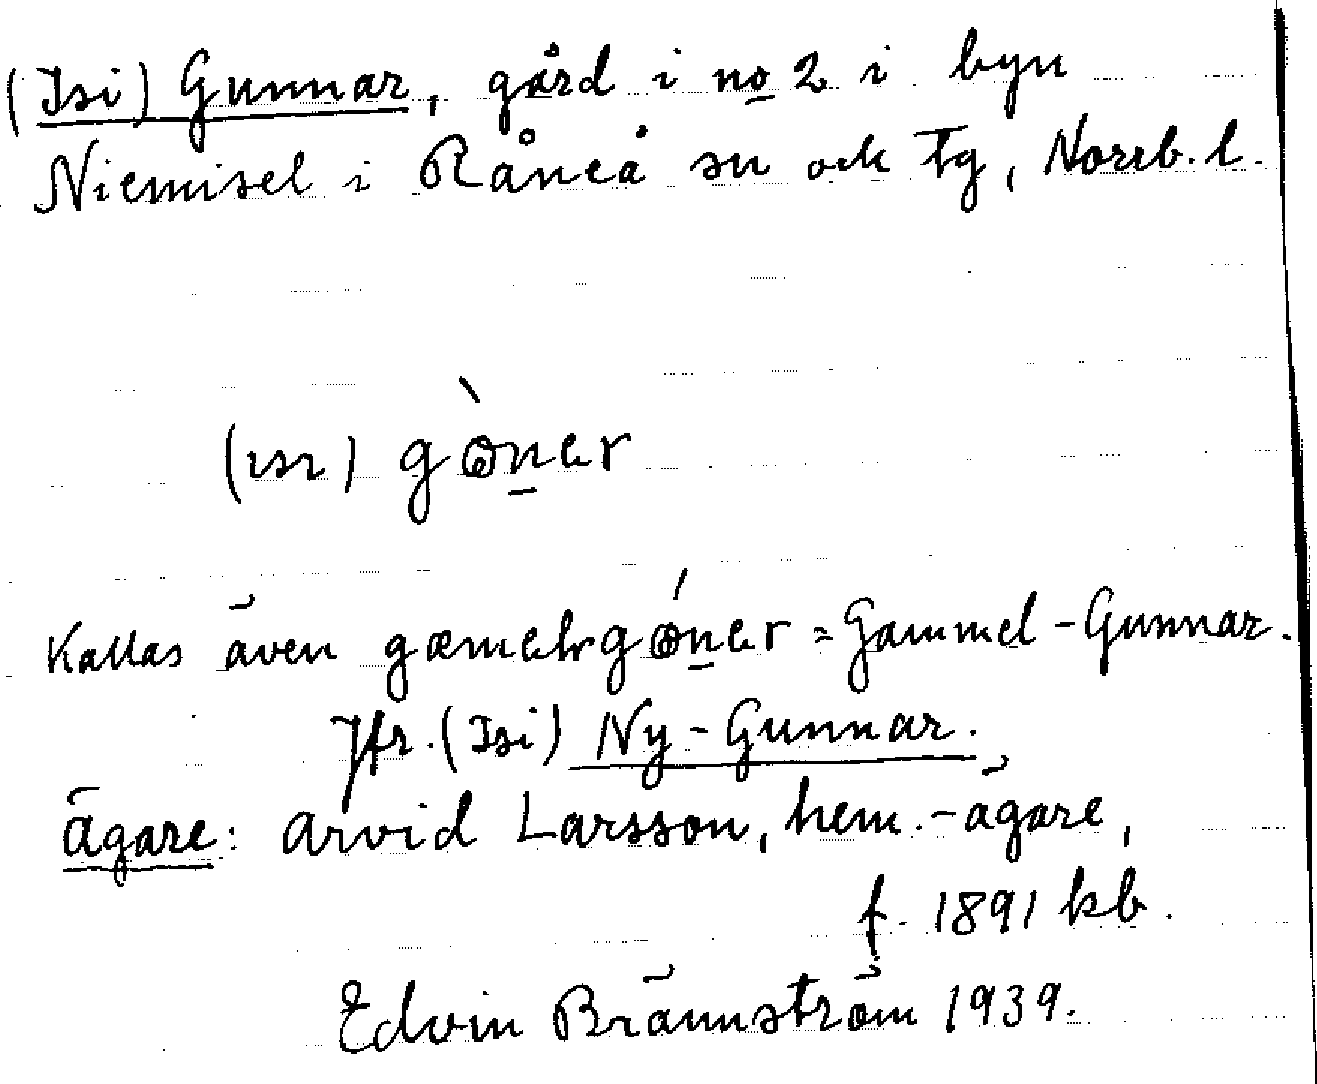 (Isi) Gunnar, gård i no 2 i byn
Niemisel i Råneå sn ock tg, Norrb. l.
(ɪsɪ) gòner
Kallas även gæmelgóner = Gammel-Gunnar.
Jfr. (Isi) Ny-Gunnar.
Ägare: Arvid Larsson, hem.-ägare,
f. 1891 kb.
Edvin Brännström 1939.